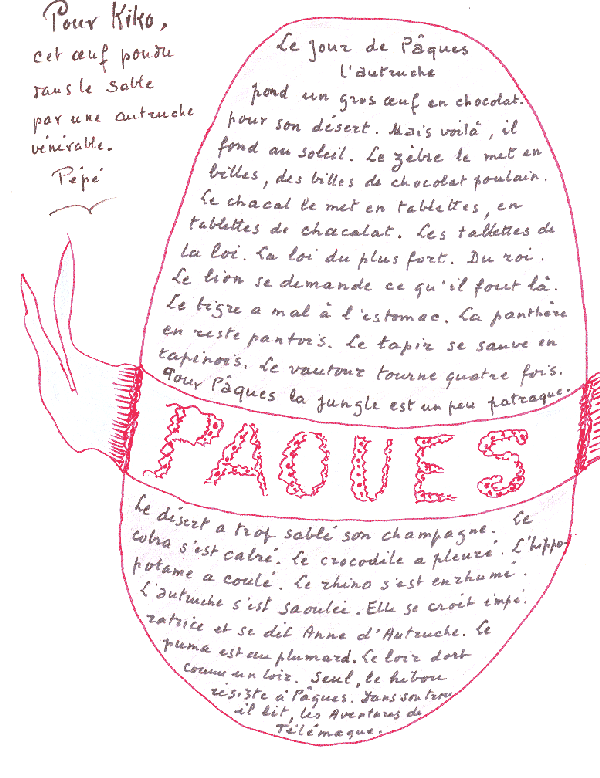 Pour Kiko,
cet œuf pondu
dans le sable
par une autruche
vénérable.
Pépé
Le jour de Pâques
l'autruche
pond un gros œuf en chocolat.
pour son désert. Mais voilà, il
fond au soleil. Le zèbre le met en
billes, des billes de chocolat poulain.
Le chacal le met en tablettes, en
tablettes de chacalat. Les tablettes de
la loi. La loi du plus fort. Du roi.
Le lion se demande ce qu'il fout là.
Le tigre a mal à l'estomac. La panthère
en reste pantois. Le tapir se sauve en
tapinois. Le vautour tourne quatre fois.
Pour Pâques la jungle est un peu patraque.
PAQUES
Le désert a trop sablé son champagne. Le
cobra s'est cabré. Le crocodile a pleuré. L'hippo-
potame a coulé. Le rhino s'est enrhumé.
L'autruche s'est saoulée. Elle se croit impé.
ratrice et se dit Anne d'Autruche. Le
puma est au plumard. Le loir dort
comme un loir. Seul, le hibou
résiste à Pâques. Dans son trou
il lit, les Aventures de
Télémaque.